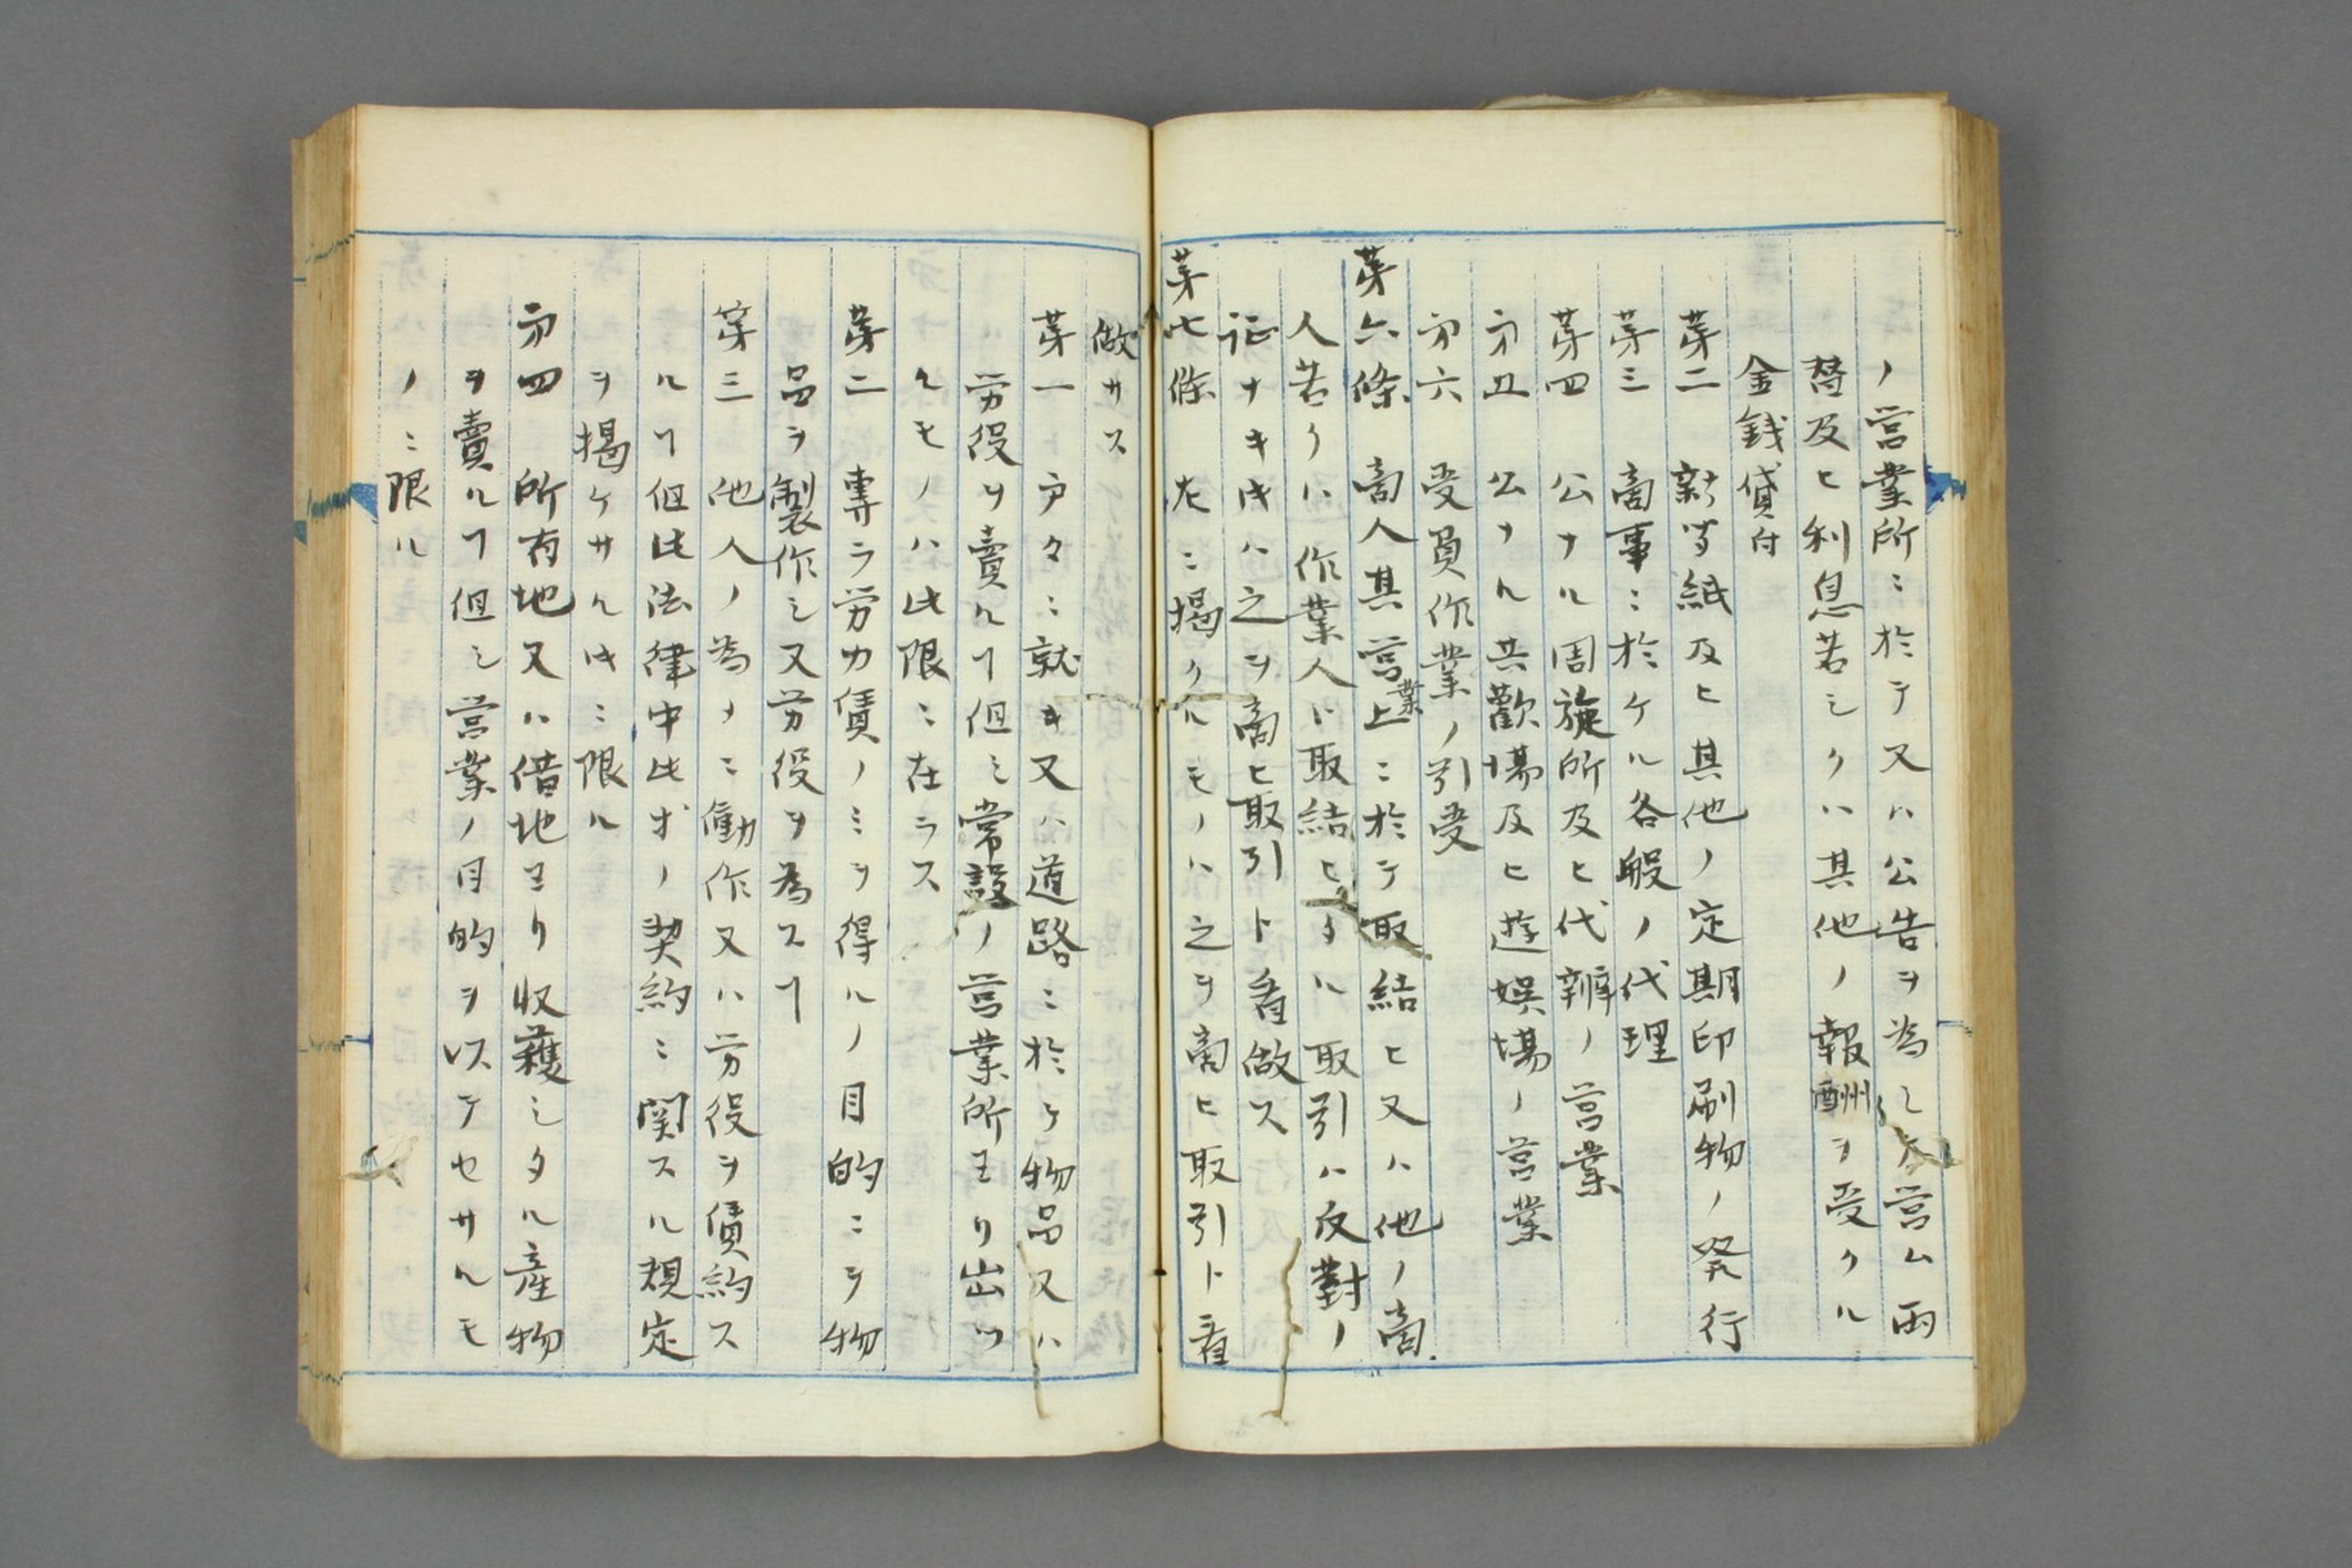 ノ営業所ニ於テ又ハ公告ヲ為シテ営ム両
替及ヒ利息若シクハ其他ノ報酬ヲ受クル
金銭貸付
第二 新聞紙及ヒ其他ノ定期印刷物ノ発行
第三 商事ニ於ケル各般ノ代理
第四 公ナル周旋所及ヒ代辨ノ営業
第五 公ナル共歡場及ヒ遊娯場ノ営業
第六 受負作業ノ引受
第六條 商人其営業上ニ於テ取結ヒ又ハ他ノ商
人若クハ作業人ト取結ヒタル取引ハ反對ノ
証ナキ时ハ之ヲ商ヒ取引ト看做ス
第七條 左ニ揭クルモノハ之ヲ商ヒ取引ト看
做サス
第一 戸々ニ就キ又ハ道路ニ於テ物品又ハ
労役ヲ賣ルヿ但シ常設ノ営業所ヨリ出ツ
ルモノハ此限ニ在ラス
第二 專ラ労力賃ノミヲ得ルノ目的ニテ物
品ヲ製作シ又労役ヲ為スヿ
第三 他人ノ為メニ働作又ハ労役ヲ債約ス
ルヿ但此法律中此才ノ契約ニ関スル規定
ヲ揭ケサル时ニ限ル
第四 所有地又ハ借地ヨリ収穫シタル産物
ヲ賣ルヿ但シ営業ノ目的ヲ以テセサルモ
ノニ限ル